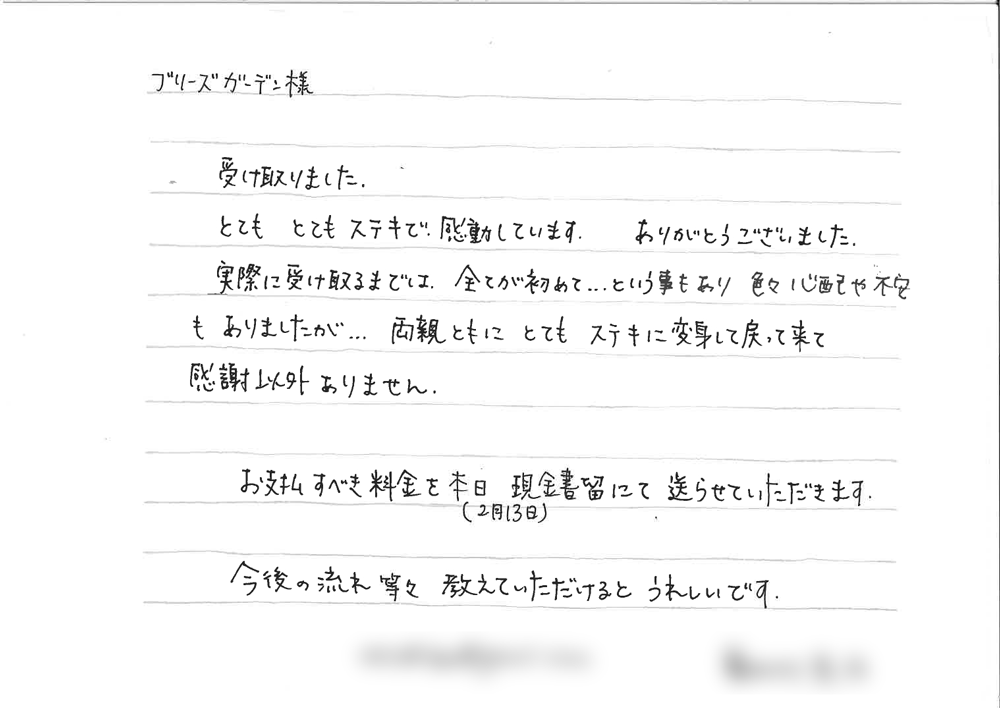 ブリーズガーデン様
受け取りました.
とても とても ステキで 感動しています. ありがとうございました.
実際に受け取るまでは、全てが初めて...という事もあり 色々心配や不安
も ありましたが... 両親ともに とても ステキに変身して戻って来て
感謝以外ありません.
お支払すべき料金を本日 現金書留にて 送らせていただきます.
(2月13日)
今後の流れ等々 教えていただけると うれしいです.